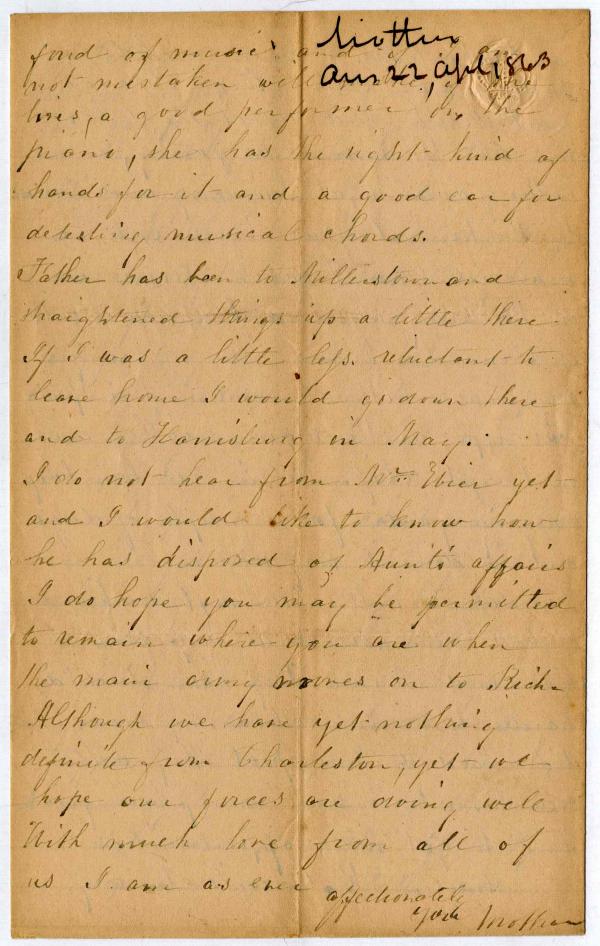 Mother
Ans 22, Apl, 1863
fond of music and if I am
not mistaken will make, if she
lives, a good performer on the
piano, she has the right kind of
hands for it and a good ear for
detecting musical chords.
Father has been to Millerstown and
straightened things up a little there.
If I was a little less reluctant to
leave home I would go down there
and to Harrisburg in May.
I do not hear from Wm Ebier yet
and I would like to know how
he has disposed of Aunt's affairs
I do hope you may be permitted
to remain where you are when
the main army moves on to Rich-
Although we have yet nothing
definite from Charleston, yet we
hope our forces are doing well
With much love from all of
us I am as ever
affectionately
your Mother